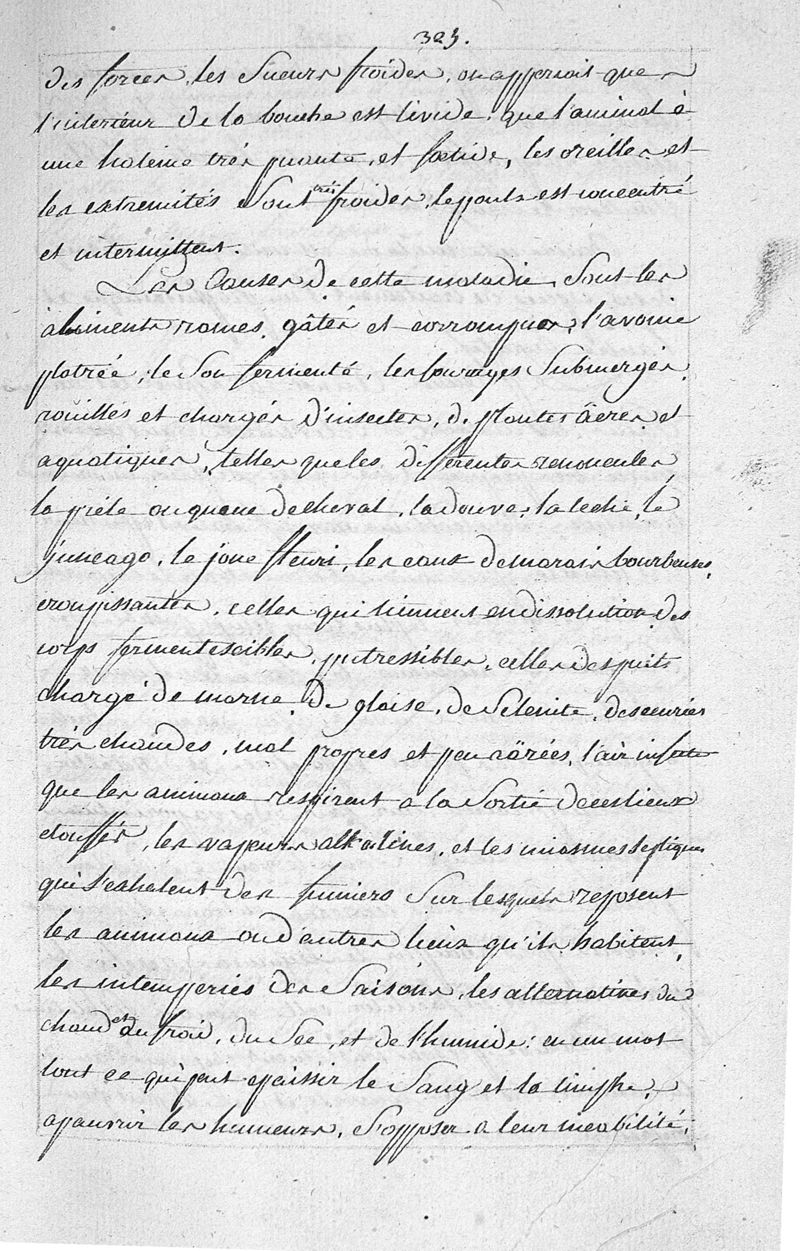 325.
des forces, les Sueurs froides, on apperçoit que
l'interieur de la bouche est livide, que l'animal à
une haleine très puante, et foetide, les oreilles et
les extremités Sont très froides, le pouls est concentré
et intermittent.
Les Causes de cette maladie, Sont les
aliments rames, gâtés et corrompues, l'avoine
platrée, le Son fermenté, les fourages Submerges,
rouillés et chargés d'insectes, de plantes âcres et
aquatiques, telles que les differentes renoncules
la prêle ou queue de cheval, la douve, la leche, le
juncago, le jonc fleuri, les eaux de marais bourbeuses,
croupissantes, celles qui tiennent en dissolution des
corps fermentescibles, putressibles, celles des puits
chargé de marne, de glaise, de Selenite, des ecuries
très chaudes, mal propres et peu aërées, l'air infecte
que les animaux respirent a la Sortie de ces lieux
etouffés, les vapeurs alkalines, et les miasmes Septiques
qui S'exhalent des fumiers Sur lesquels reposent
les animaux ou d'autres lieux qu'ils habitent,
les intemperies des Saisons, les alternatives du
chaud et du froid, du Sec, et de l'humide: en un mot
tout ce qui peut epaissir le Sang et la limphe,
apauvrir les humeurs, S'opposer a leur meabilité,